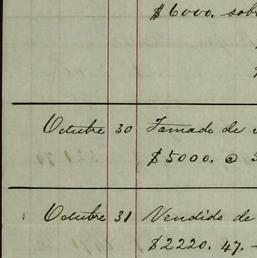 $6000. sob
Octubre 30 Tomado de
$5000. @
Octubre 31 Vendido de
$2220. 47.-